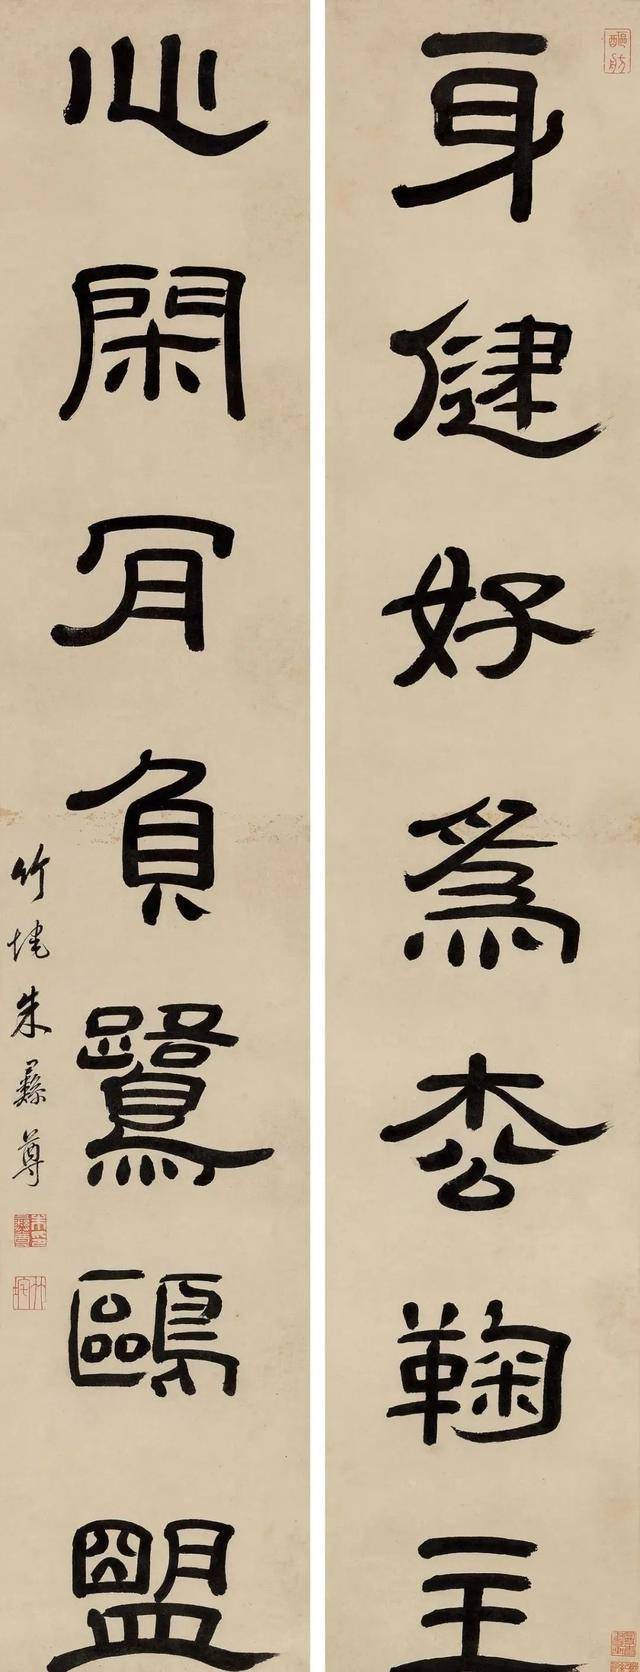 身健好爲枩鞠主
心閑肎負鷺鷗盟
竹垞朱彝尊
竹垞